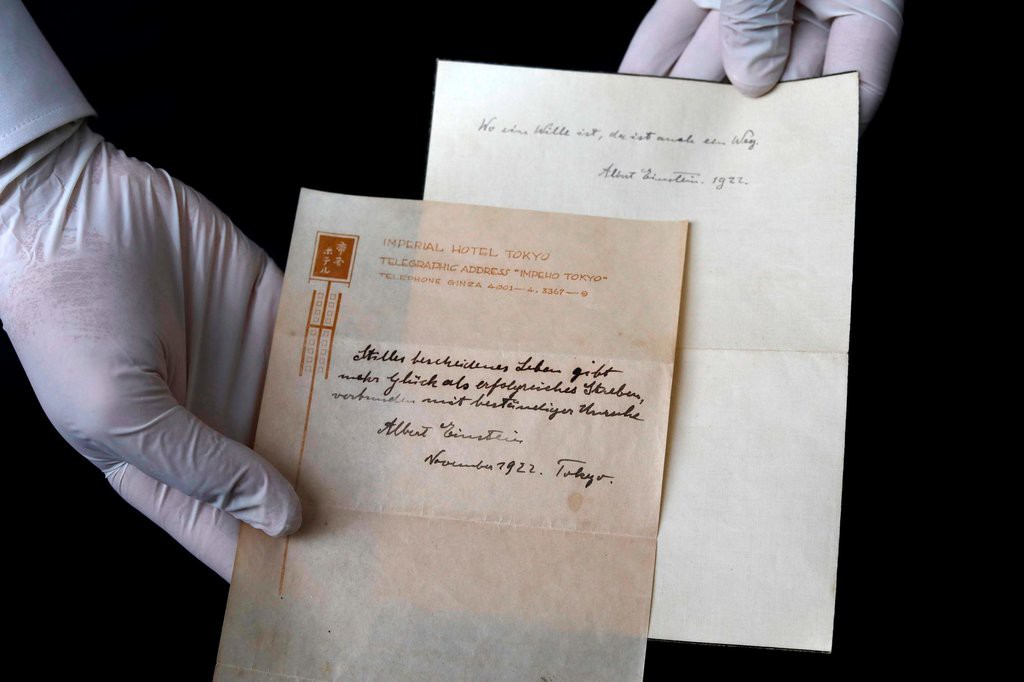 Wo ein Wille ist, da ist auch ein Weg.
Albert Einstein. 1922.
帝国
ホテル
IMPERIAL HOTEL TOKYO
TELEGRAPHIC ADDRESS "IMPEHO TOKYO"
TELEPHONE GINZA 4001—4, 3367—9
Stilles bescheidenes Leben gibt
mehr Glück als erfolgreiches Streben,
verbunden mit beständiger Unruhe
Albert Einstein
November 1922. Tokyo.